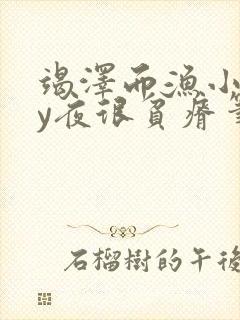 竭澤而漁小
y夜琅負瘠筆
石榴樹的午後